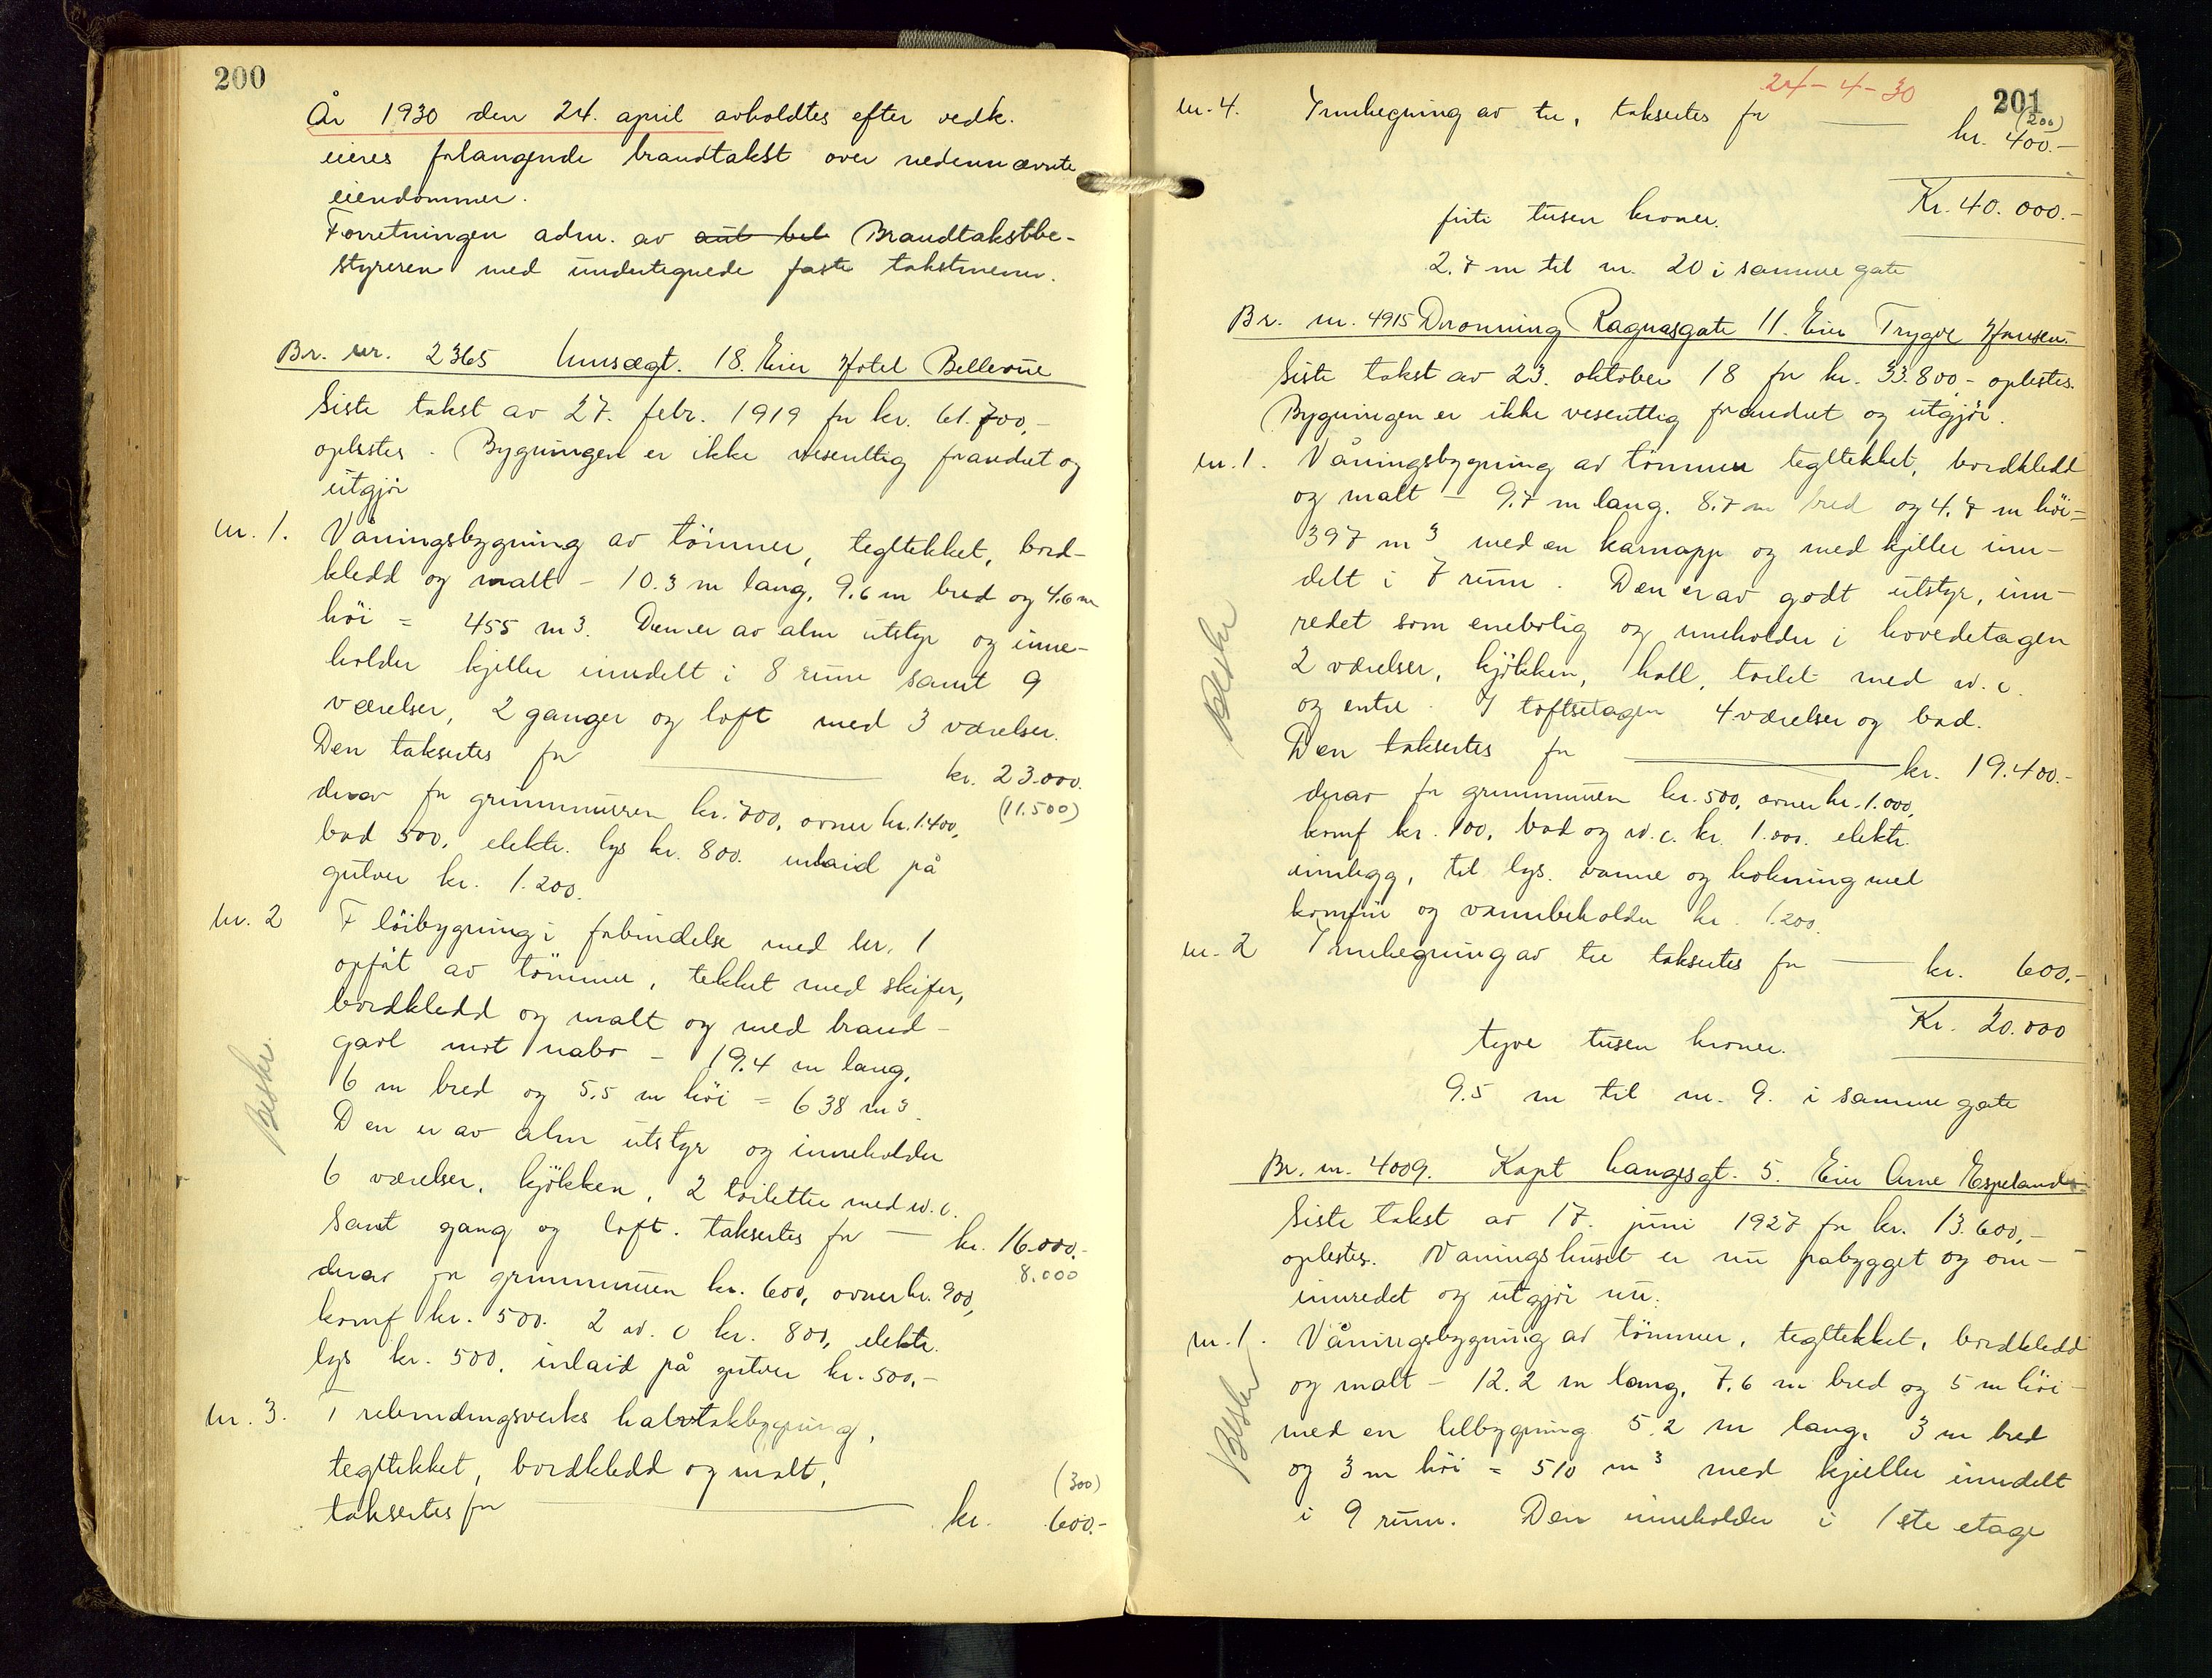 200
År 1930 den 24. april avholdtes efter vedk.
eieres forlangende brandtakst over nedennævnte
eiendommer.
Forretningen adm. av Brandtakstbe-
styreren med undertegnede faste takstmenn.
Br. nr. 2365 18. Eier Hotel Bellevue
Siste takst av 27. febr. 1919 for kr. 61.700,-
oplestes. Bygningen er ikke vesentlig forandret og
utgjör
nr. 1. Våningsbygning av tömmer, tegltekket, bord-
kledd og malt - 10.3 m lang, 9.6 m bred og 4.6 m
höi = 455 m3. Den er av alm utstyr og inne-
holder kjeller inndelt i 8 rum samt 9
værelser, 2 ganger og loft med 3 værelser.
Den takseres for kr. 23.000.
(11.500)
derav for grunnmuren kr. 700, ovner kr. 1.400,
bad 500, elektr. lys kr. 800. inlaid på
gulver kr. 1.200.
nr. 2 Flöibygning i forbindelse med nr. 1
opfört av tömmer, tekket med skifer,
bordkledd og malt og med brand-
gavl mot nabo - 19.4 m lang,
6 m bred og 5.5 m höi = 638 m3.
Beskr.
Den er av alm utstyr og inneholder
6 værelser, kjökken, 2 toiletter med w.c.
samt gang og loft. takseres for — kr. 16.000.-
8.000
derav for grunnmuren kr. 600, ovner kr. 900,
komf kr. 500. 2 w.c kr. 800, elektr.
lys kr. 500, inlaid på gulver kr. 500,-
nr. 3. Trebindingsverks halvtakbygning,
tegltekket, bordkledd og malt,
(300)
takseres for kr. 600.-
24-4-30
201
nr. 4. Innhegning av tre, takseres for kr. 400.-
(200)
Kr. 40.000.-
firti tusen kroner.
2.7 m til nr. 20 i samme gate
Br. nr. 4915 Dronning Ragnasgate 11. Eier Trygve Hansen.
Siste takst av 23. oktober 18 for kr. 33.800- oplestes.
Bygningen er ikke vesentlig forandret og utgjör.
nr. 1. Våningsbygning av tömmer tegltekket, bordkledd
og malt - 9.7 m lang. 8.7 m bred og 4.7 m höi =
397 m3 med en karnapp og med kjeller inn-
delt i 7 rum. Den er av godt utstyr, inn-
redet som enebolig og inneholder i hovedetagen
Beskr
2 værelser, kjökken, hall, toilet med w.c.
og entre. I loftsetagen 4 værelser og bad.
Den takseres for kr. 19.400.-
derav for grunnmuren kr. 500, ovner kr. 1.000,
komf kr. 100, bad og w.c. kr. 1.000. elektr.
innlegg, til lys. varme og kokning med
komfür og varmbeholder kr. 1.200.
nr. 2 Innhegning av tre takseres for — kr. 600.-
Kr. 20.000
tyve tusen kroner.
9.5 m til nr. 9. i samme gate
Br. nr. 4009. Kapt Langesgt. 5. Eier Arne Espeland
Siste takst av 17. juni 1927 for kr. 13.600,-
oplestes. Våningshuset er nu påbygget og om-
innredet og utgjör nu.
nr. 1. Våningsbygning av tömmer, tegltekket, bordkledd
og malt - 12.2 m lang, 7.6 m bred og 5 m höi -
Beskr
med en tilbygning 5.2 m lang, 3 m bred
og 3 m höi = 510 m3 med kjeller inndelt
i 9 rum. Den inneholder i 1ste etage